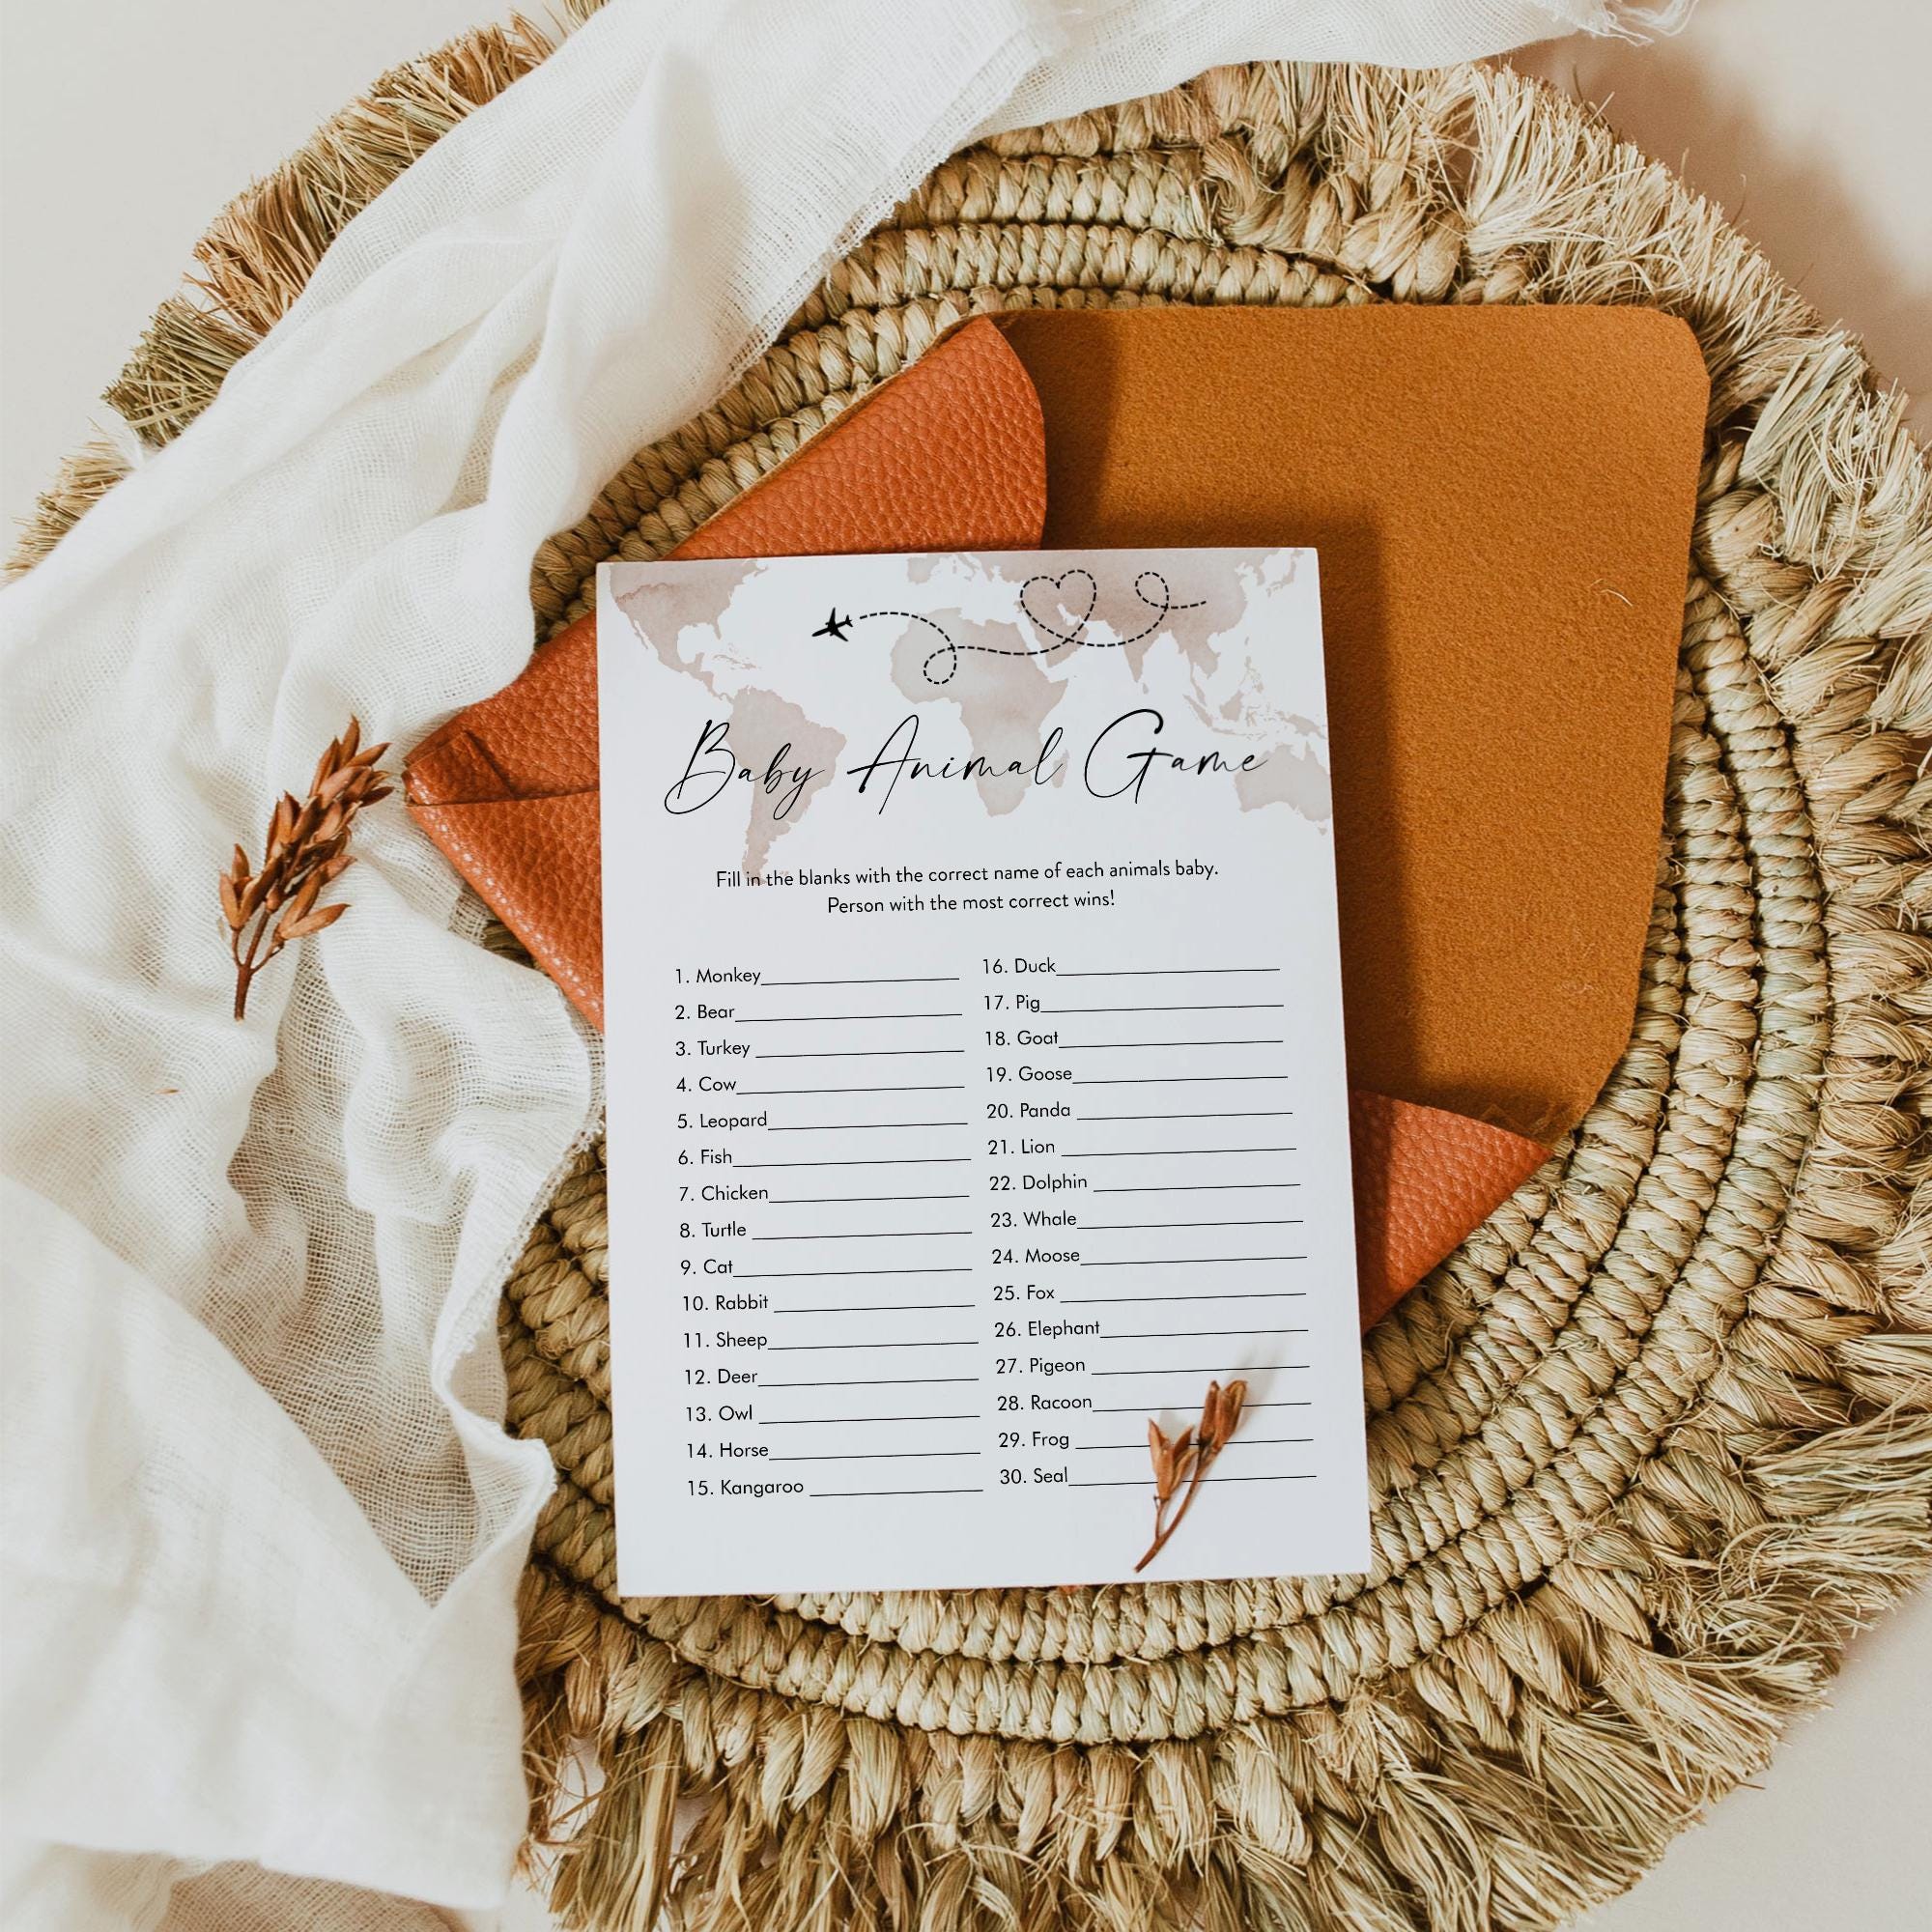 Baby Animal Game
Fill in the blanks with the correct name of each animals baby.
Person with the most correct wins!
1. Monkey
2. Bear
3. Turkey
4. Cow
5. Leopard
6. Fish
7. Chicken
8. Turtle
9. Cat
10. Rabbit
11. Sheep
12. Deer
13. Owl
14. Horse
15. Kangaroo
16. Duck
17. Pig
18. Goat
19. Goose
20. Panda
21. Lion
22. Dolphin
23. Whale
24. Moose
25. Fox
26. Elephant
27. Pigeon
28. Racoon
29. Frog
30. Seal